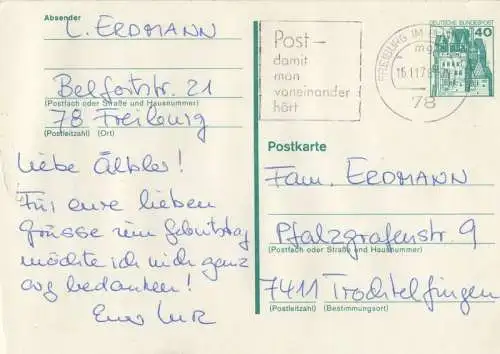 Absender
L. ERDMANN
Belfortstr. 21
(Postfach oder Straße und Hausnummer)
78 Freiburg
(Postleitzahl) (Ort)
Liebe Älbler!
Für eure lieben
Grüsse zum Geburtstag
möchte ich mich ganz
arg bedanken!
Euer
Post –
damit
man
voneinander
hört
FREIBURG IM
15.11.78
78
DEUTSCHE BUNDESPOST
40
Postkarte
Fam. ERDMANN
Pfalzgrafenstr. 9
(Postfach oder Straße und Hausnummer)
7411 Trochtelfingen
(Postleitzahl) (Bestimmungsort)